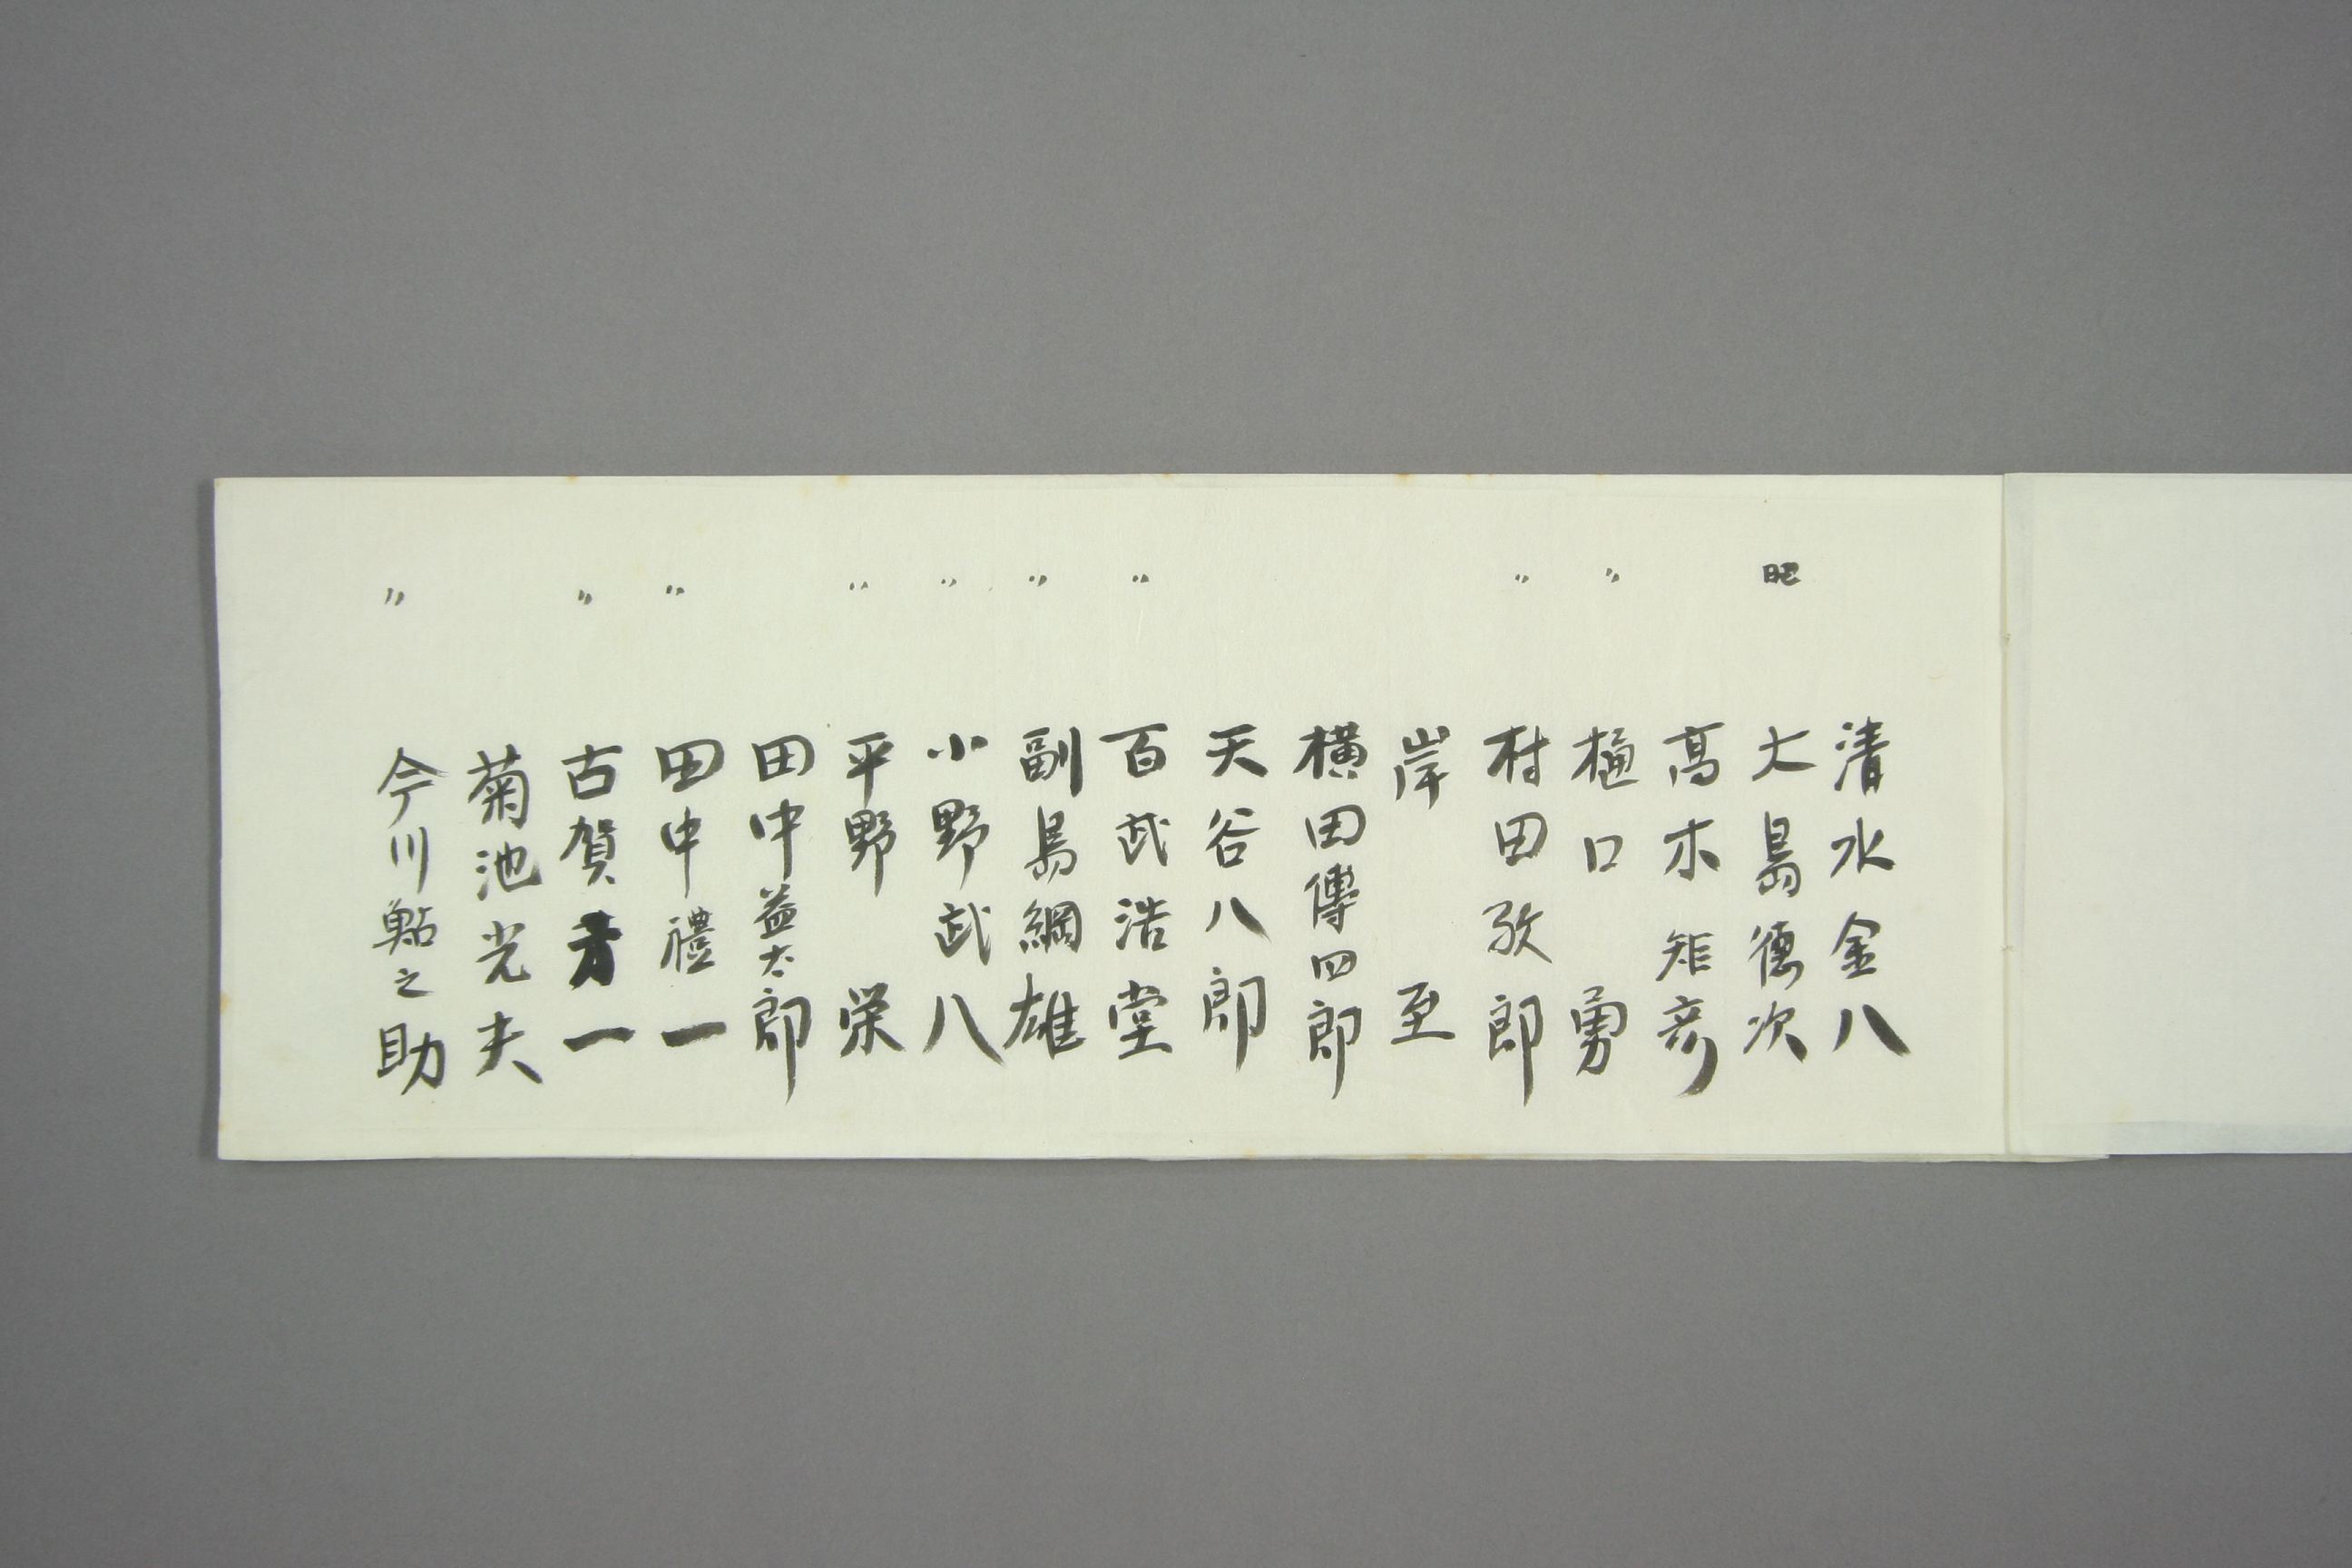 清水金八
大島德次
髙木矩彦
〃 樋口勇
〃 村田孜郎
岸至
橫田傳四郎
天谷八郎
〃 百武浩堂
〃 副島綱雄
〃 小野武八
〃 平野栄
田中益太郎
〃 田中禮一
〃 古賀一
菊池光夫
〃 今川鮎之助